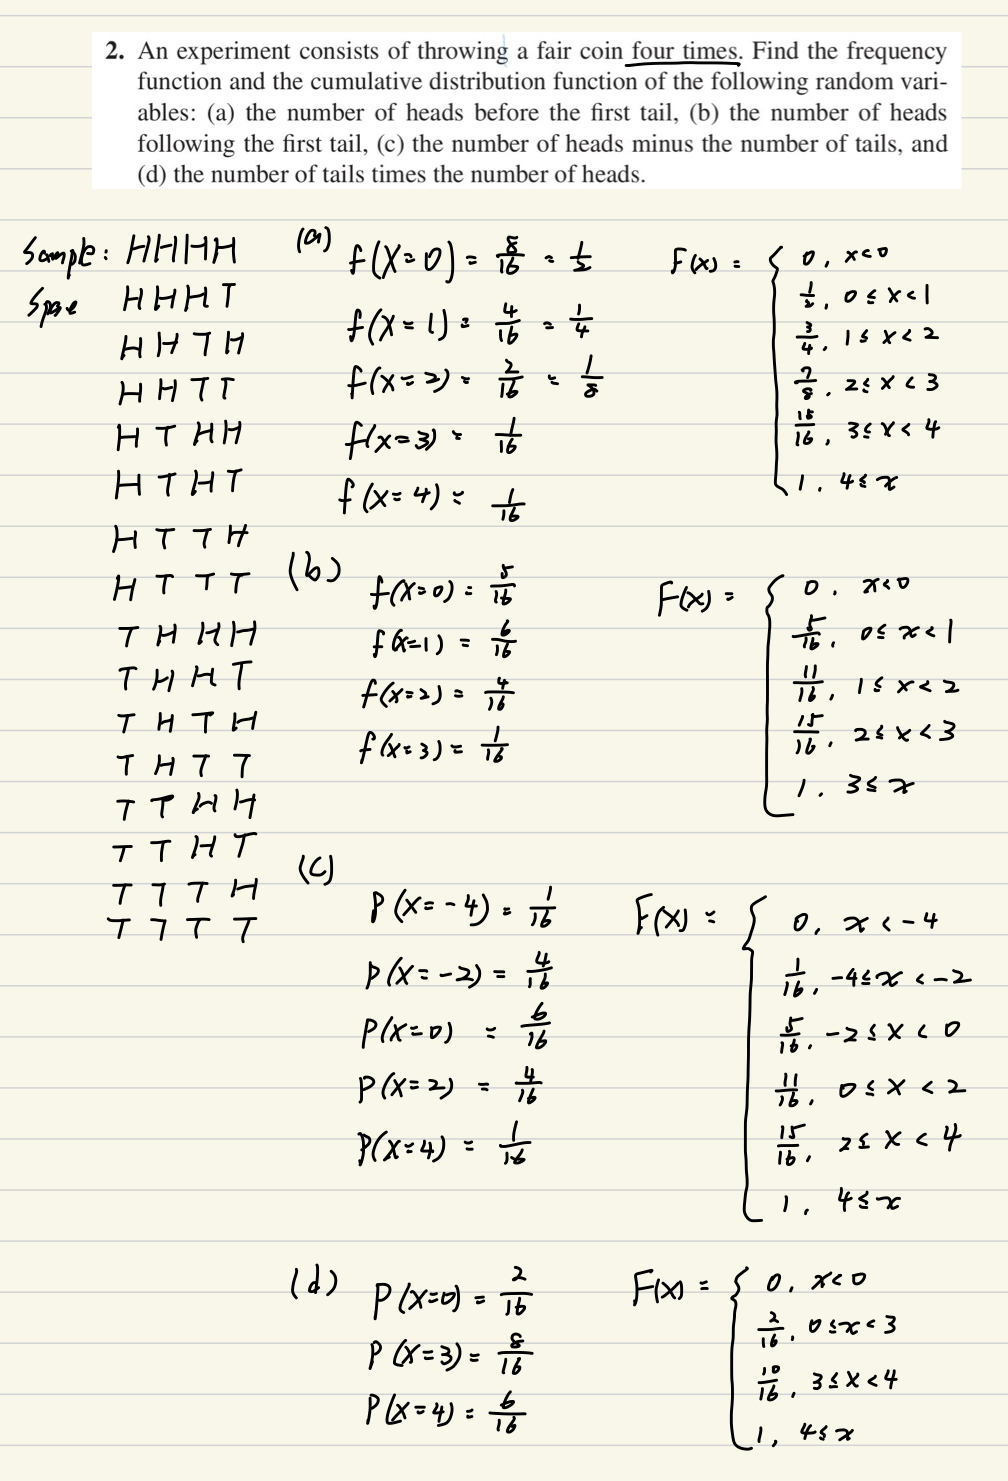 2. An experiment consists of throwing a fair coin four times. Find the frequency
function and the cumulative distribution function of the following random vari-
ables: (a) the number of heads before the first tail, (b) the number of heads
following the first tail, (c) the number of heads minus the number of tails, and
(d) the number of tails times the number of heads.
Sample: HHHH
Space HHHT
HHTH
HHTT
HTHH
HTHT
HTTH
HTTT
THHH
THHT
THTH
THTT
TTHH
TTHT
TTTH
TTTT
(a)
f(X=0) = 8/16 = 1/2
f(X=1) = 4/16 = 1/4
f(X=2) = 2/16 = 1/8
f(X=3) = 1/16
f(X=4) = 1/16
F(x) = { 0, x<0
1/2, 0≤x<1
3/4, 1≤x<2
7/8, 2≤x<3
15/16, 3≤x<4
1, 4≤x
(b)
f(X=0) = 5/16
f(X=1) = 6/16
f(X=2) = 4/16
f(X=3) = 1/16
F(x) = { 0, x<0
5/16, 0≤x<1
11/16, 1≤x<2
15/16, 2≤x<3
1, 3≤x
(c)
P(X=-4) = 1/16
P(X=-2) = 4/16
P(X=0) = 6/16
P(X=2) = 4/16
P(X=4) = 1/16
F(x) = { 0, x<-4
1/16, -4≤x<-2
5/16, -2≤x<0
11/16, 0≤x<2
15/16, 2≤x<4
1, 4≤x
(d)
P(X=0) = 2/16
P(X=3) = 8/16
P(X=4) = 6/16
F(x) = { 0, x<0
2/16, 0≤x<3
10/16, 3≤x<4
1, 4≤x